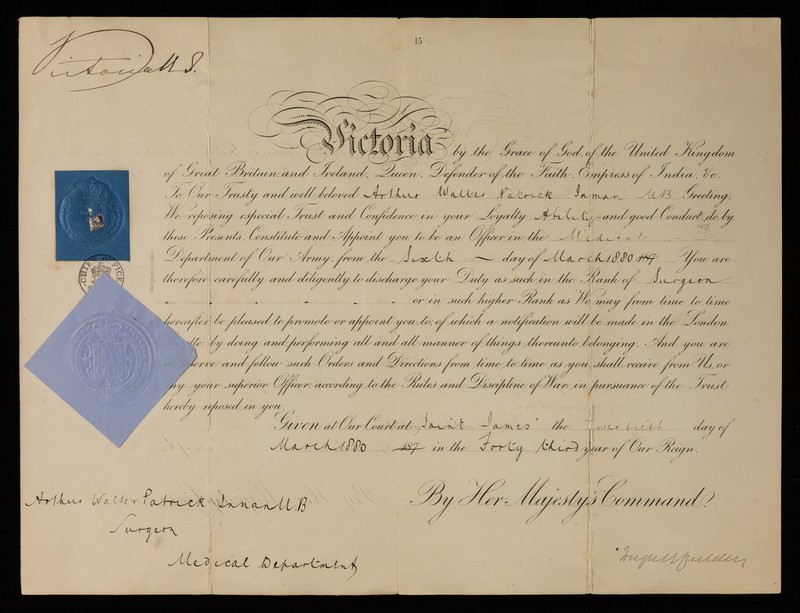 15
Victoria R I.
Victoria by the Grace of God of the United Kingdom
of Great Britain and Ireland, Queen, Defender of the Faith, Empress of India, &c.
To Our Trusty and well beloved Arthur Walter Patrick Inman MB Greeting.
We reposing especial Trust and Confidence in your Loyalty Ability and good Conduct, do by
these Presents, Constitute and Appoint you to be an Officer in the Medical
Department of Our Army, from the Sixth day of March 1880 187 . You are
therefore carefully and diligently to discharge your Duty as such in the Rank of Surgeon
or in such higher Rank as We may from time to time
hereafter be pleased to promote or appoint you to, of which a notification will be made in the London
by doing and performing all and all manner of things thereunto belonging. And you are
and follow such Orders and Directions from time to time as you shall receive from Us, or
any your superior Officer, according to the Rules and Discipline of War, in pursuance of the Trust
hereby reposed in you.
Given at Our Court at Saint James' the Twentieth day of
March 1880 187 in the Forty third year of Our Reign.
By Her Majesty's Command.
Arthur Walter Patrick Inman M.B
Surgeon
Medical Department